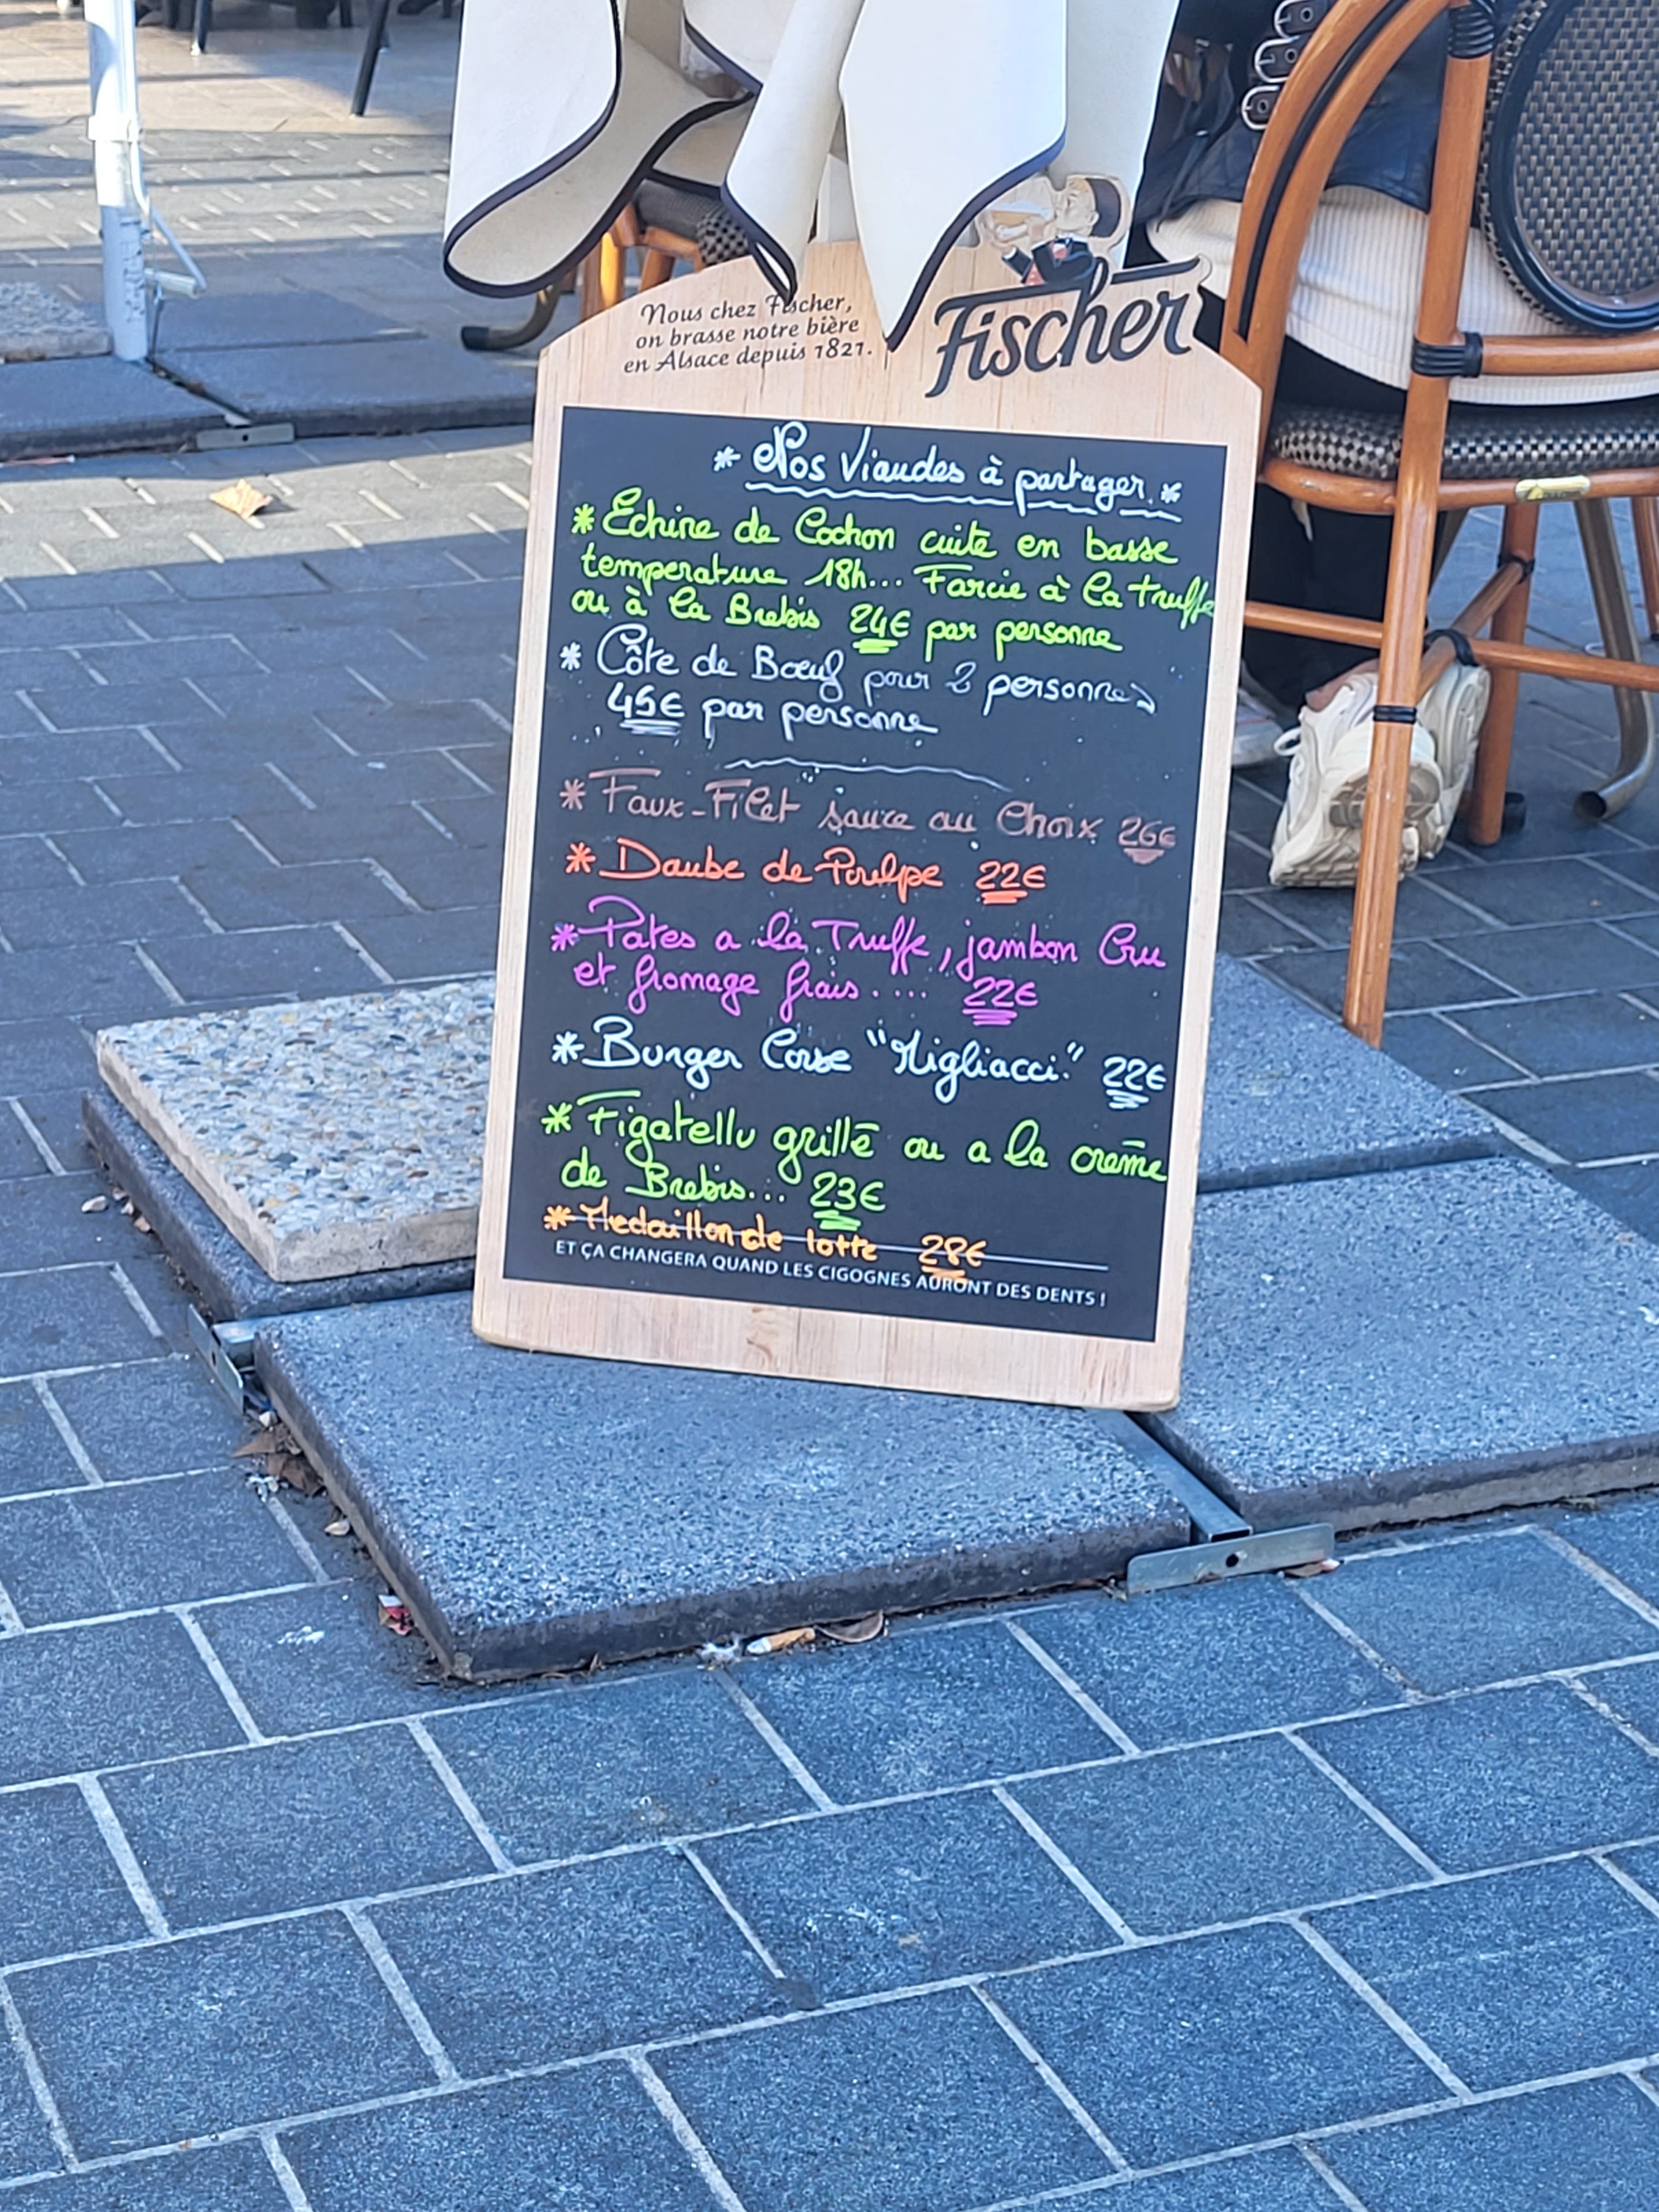 Nous chez Fischer,
on brasse notre bière
en Alsace depuis 1821.
Fischer
* Nos Viandes à partager. *
* Echine de Cochon cuite en basse
temperature 18h... Farcie à la truffe
ou à la Brebis 24€ par personne
* Côte de Bœuf pour 2 personnes
45€ par personne
* Faux-Filet sauce au Choix 26€
* Daube de Poulpe 22€
* Pates a la Truffe, jambon Cru
et fromage frais.... 22€
* Burger Corse "Migliacci" 22€
* Figatellu grillé ou a la crème
de Brebis... 23€
* Medaillon de lotte 28€
ET ÇA CHANGERA QUAND LES CIGOGNES AURONT DES DENTS !